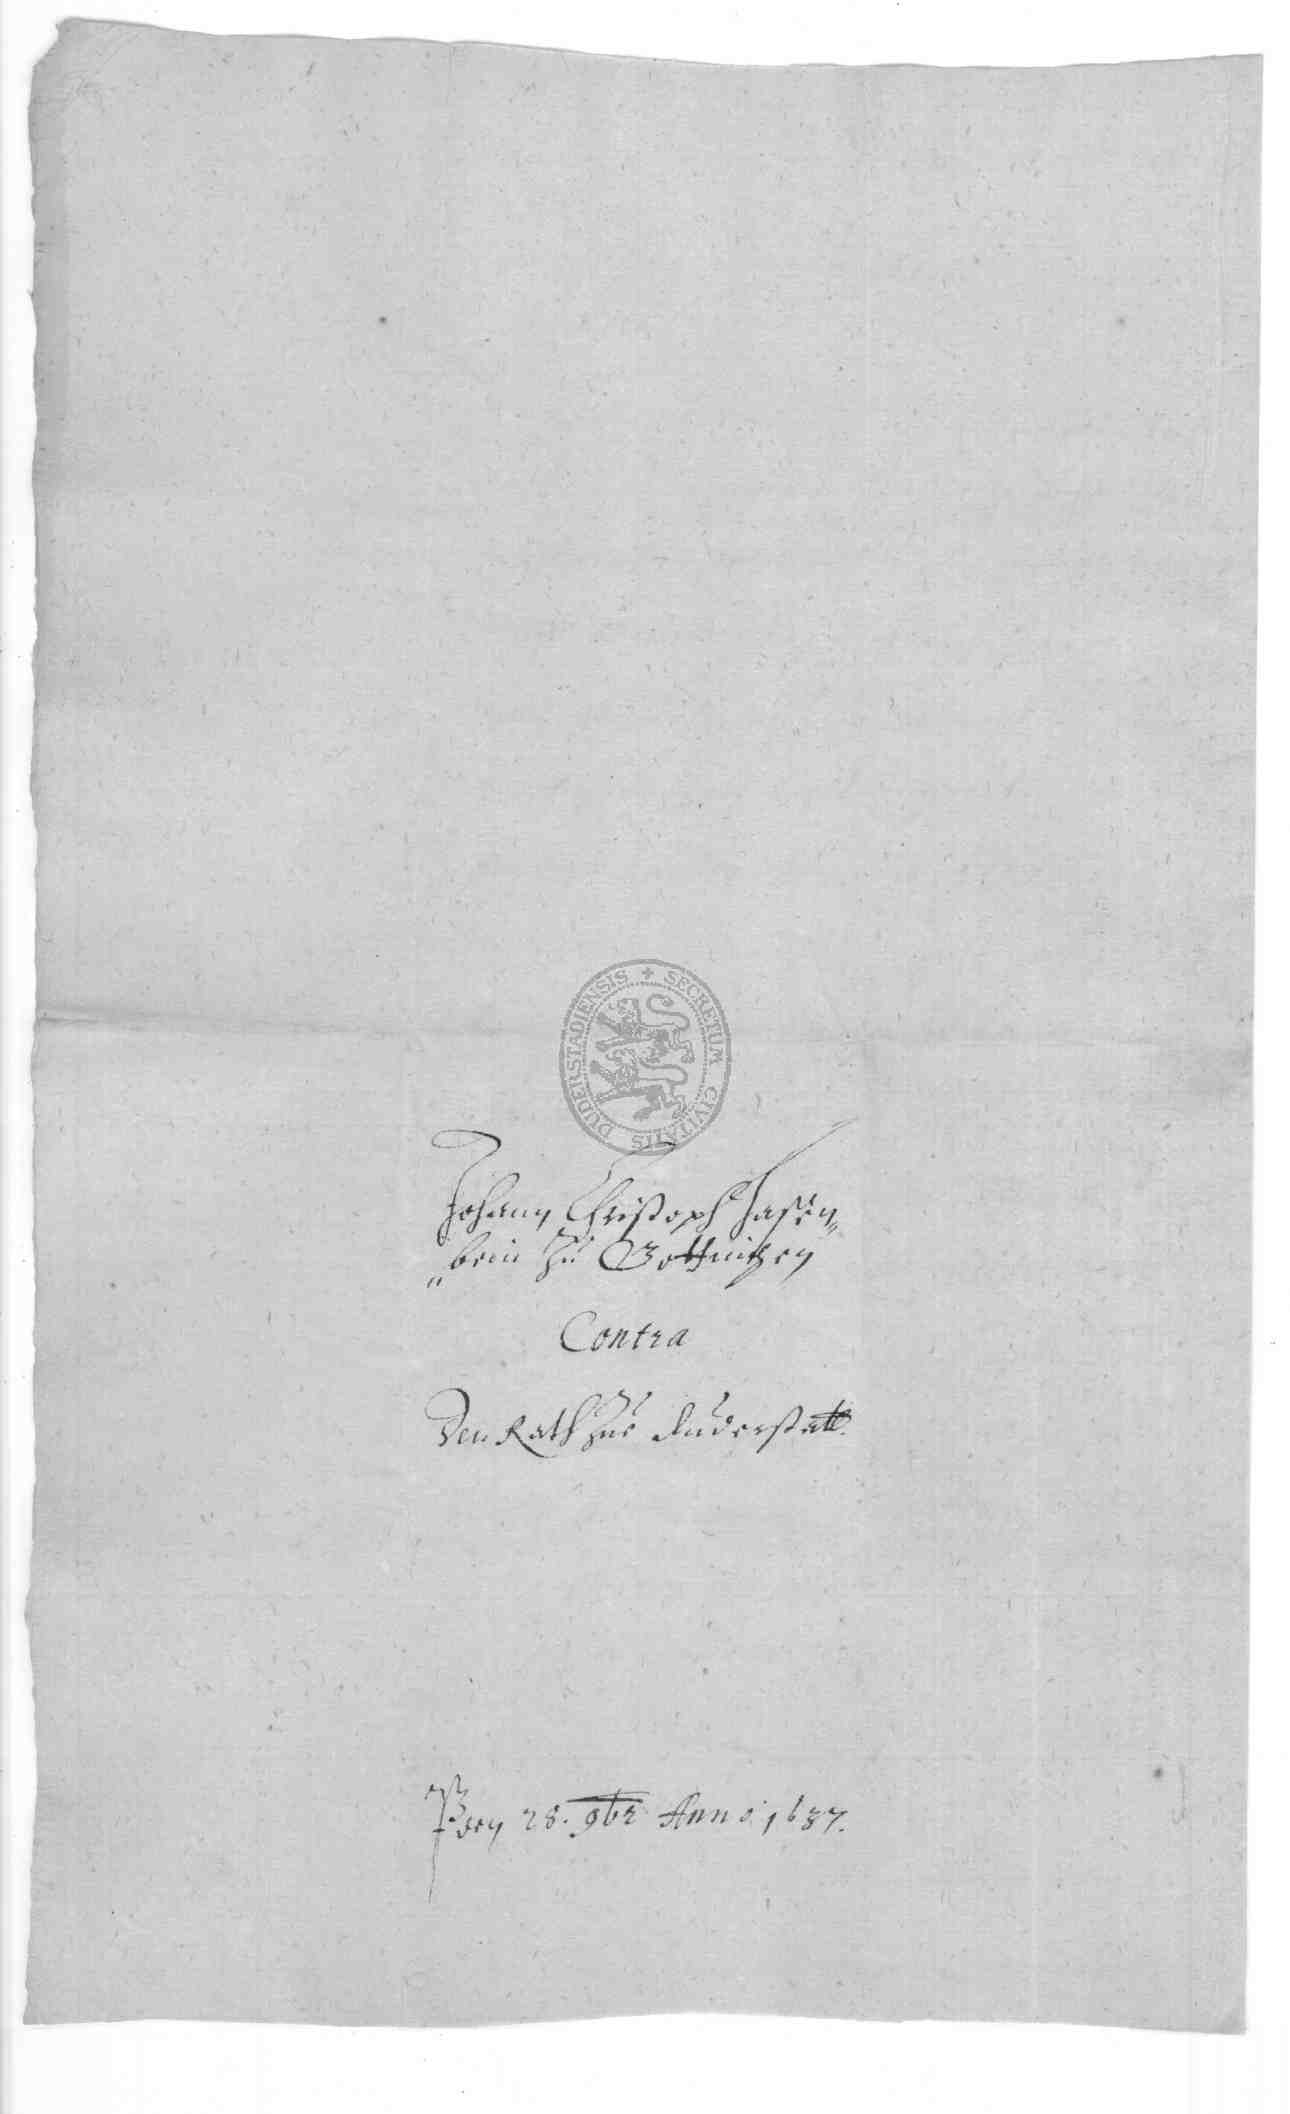 SECRETUM CIVITATIS DUDERSTADIENSIS
Johann Christoph Hasen„
„bein zu Gottingen
Contra
Den Rath zue Duderstatt.
den 28. 9br Anno 1687.